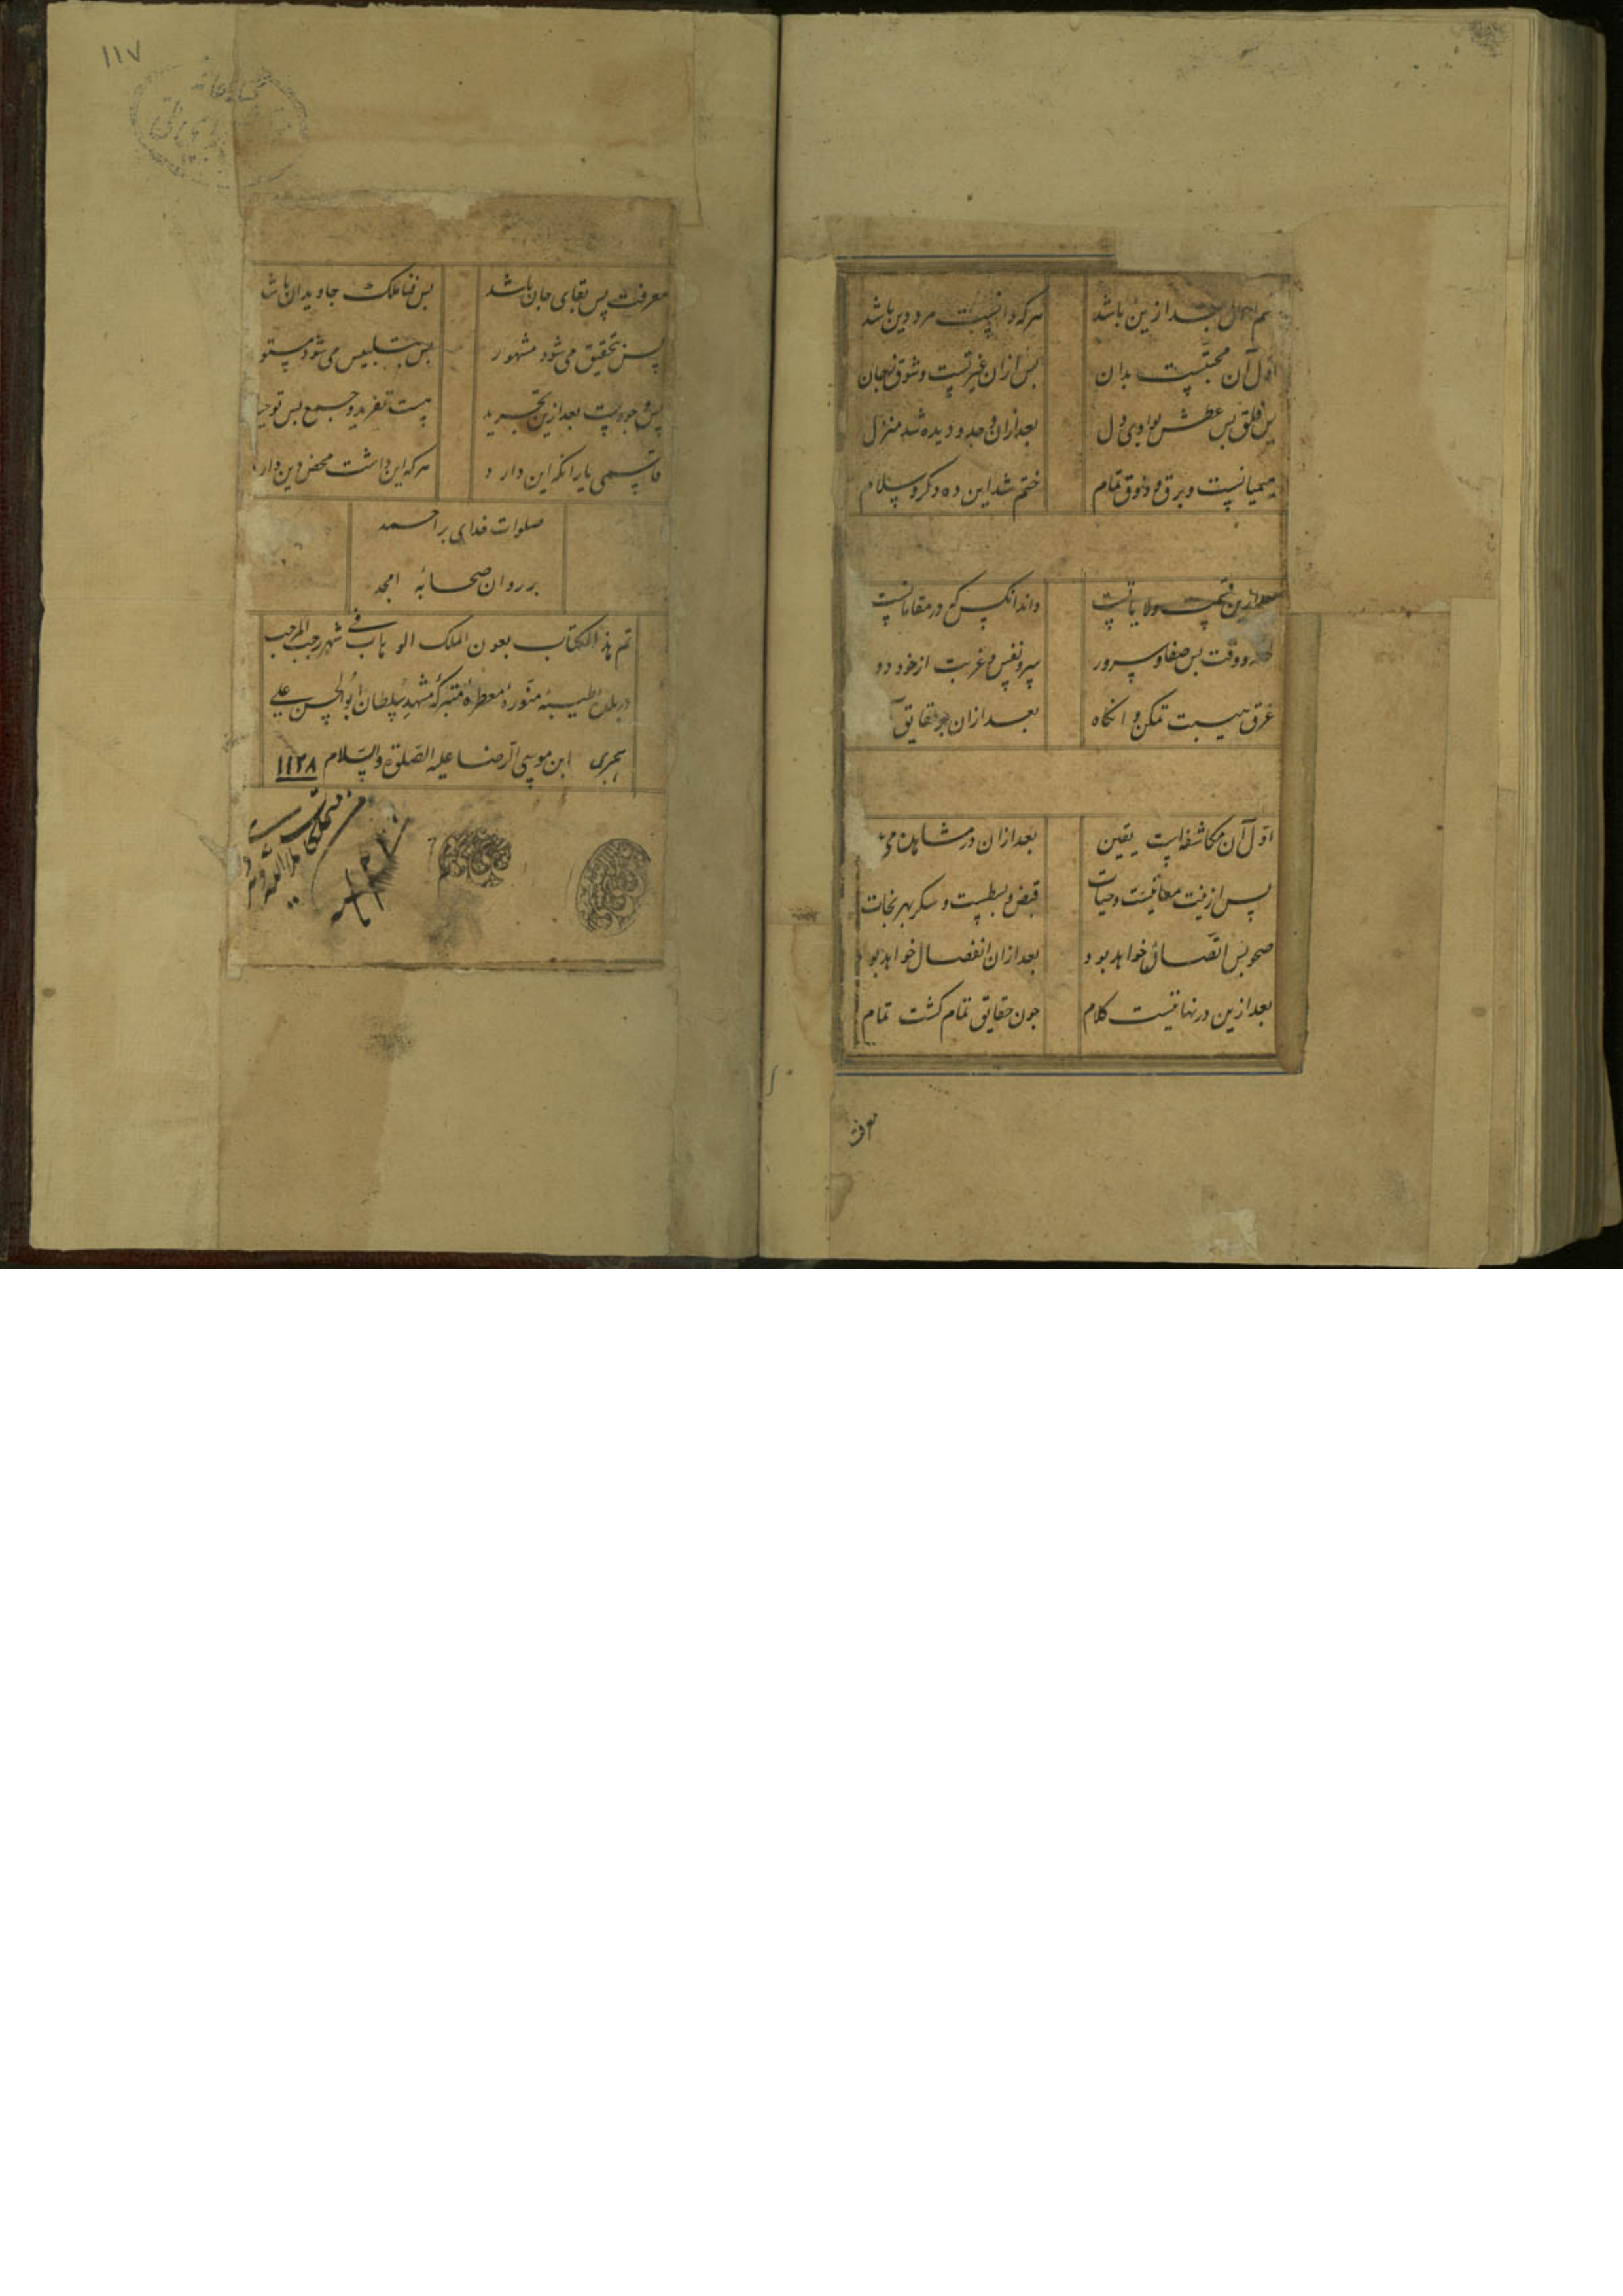 هرکه دانست مرد دین باشد
اول آن محبتست بدان
پس ازان غیرتست و شوق بجان
پس قلق پس عطش بوادی دل
بعد ازان وجد و دیده شد منزل
هیمانست و برق و ذوق تمام
ختم شد این ده دکر و سلام
ولایاتست
داند انکس که در مقاماتست
و وقت پس صفا و سرور
سر و نفس و غربت از خود دور
غرق غیبت تمکن و انکاه
بعد ازان حقایق
اول آن مکاشفه است یقین
بعد ازان در مشاهده می
پس ازینت معاینست و حیات
قبض و بسطست و سکر بهر نجات
صحو پس اتصال خواهد بود
بعد ازان انفصال خواهد بو
بعد ازین در نهایتست کلام
جون حقایق تمام کشت تمام
معرفت
١١٧
معرفت پس بقای جان باشد
پس فنا ملک جاویدان باشد
پس تحقیق می شود مشهور
پس بتلبیس می شود مستور
پس وجودست بعد ازین تجرید
هست تفرید و جمع پس توحید
قاسمی یار انکه این دارد
هرکه این داشت محض دین دارد
صلوات خدای بر احمد
بر روان صحابهٔ امجد
تم هذا الکتاب بعون الملک الوهاب فی شهر رجب المرجب
در بلدهٔ طیبهٔ منورهٔ معطرهٔ متبرکهٔ مشهد سلطان ابوالحسن علی
ابن موسی الرضا علیه الصلوة والسلام ١١٢٨ هجری